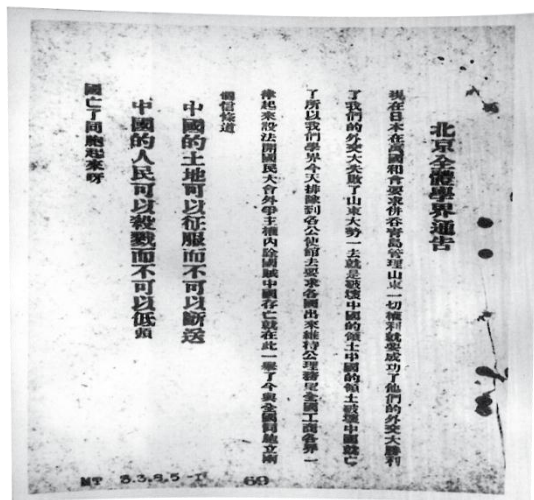 北京全體學界通告
現在日本在萬國和會要求併吞青島管理山東一切權利就要成功了他們的外交大勝利
了我們的外交大失敗了山東大勢一去就是破壞中國的領土中國的領土破壞中國就亡
了所以我們學界今天排隊到各公使館去要求各國出來維持公理務望全國工商各界一
律起來設法開國民大會外爭主權內除國賊中國存亡就在此一舉了今與全國同胞立兩
個信條道
中國的土地可以征服而不可以斷送
中國的人民可以殺戮而不可以低頭
國亡了同胞起來呀
MT 3.3.9.5-1 69